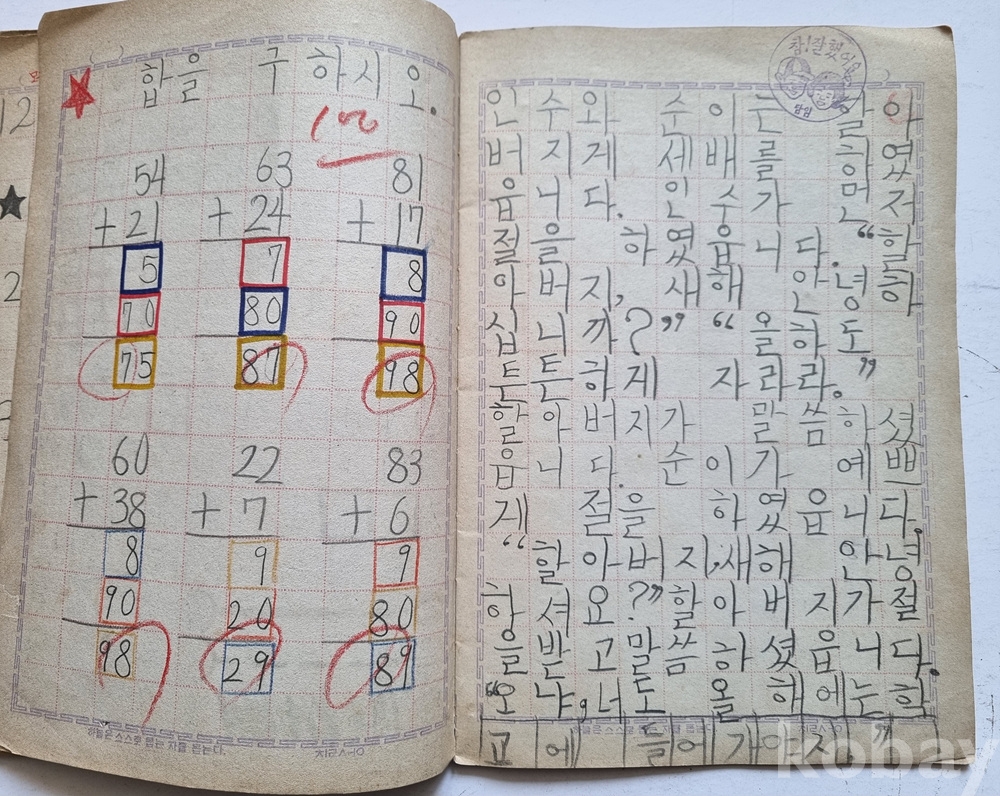 합을 구하시오.
100
54 63 81
+21 +24 +17
5 7 8
70 80 90
75 87 98
60 22 83
+38 +7 +6
8 9 9
90 20 80
98 29 89
참!잘했어요
담임
인수와 순이는 할아
버지게 세배를 하였
읍니다. 인수가 먼저
절을 하였읍니다. “할
아버지, 새해 안녕하
십니까?” “올하도
튼튼하게 자라라.”
할아버지가 말씀하셨
읍니다. 순이가 예쁘
게 절을 하였읍니다.
“할아버지,새해 안녕
하셔요?”할아버지가 절
을받고말씀하셨읍니다.
“오냐,너도 올해에는학
교에 들어가야지.”
하늘은 스스로 돕는 자를 돕는다.
kobay